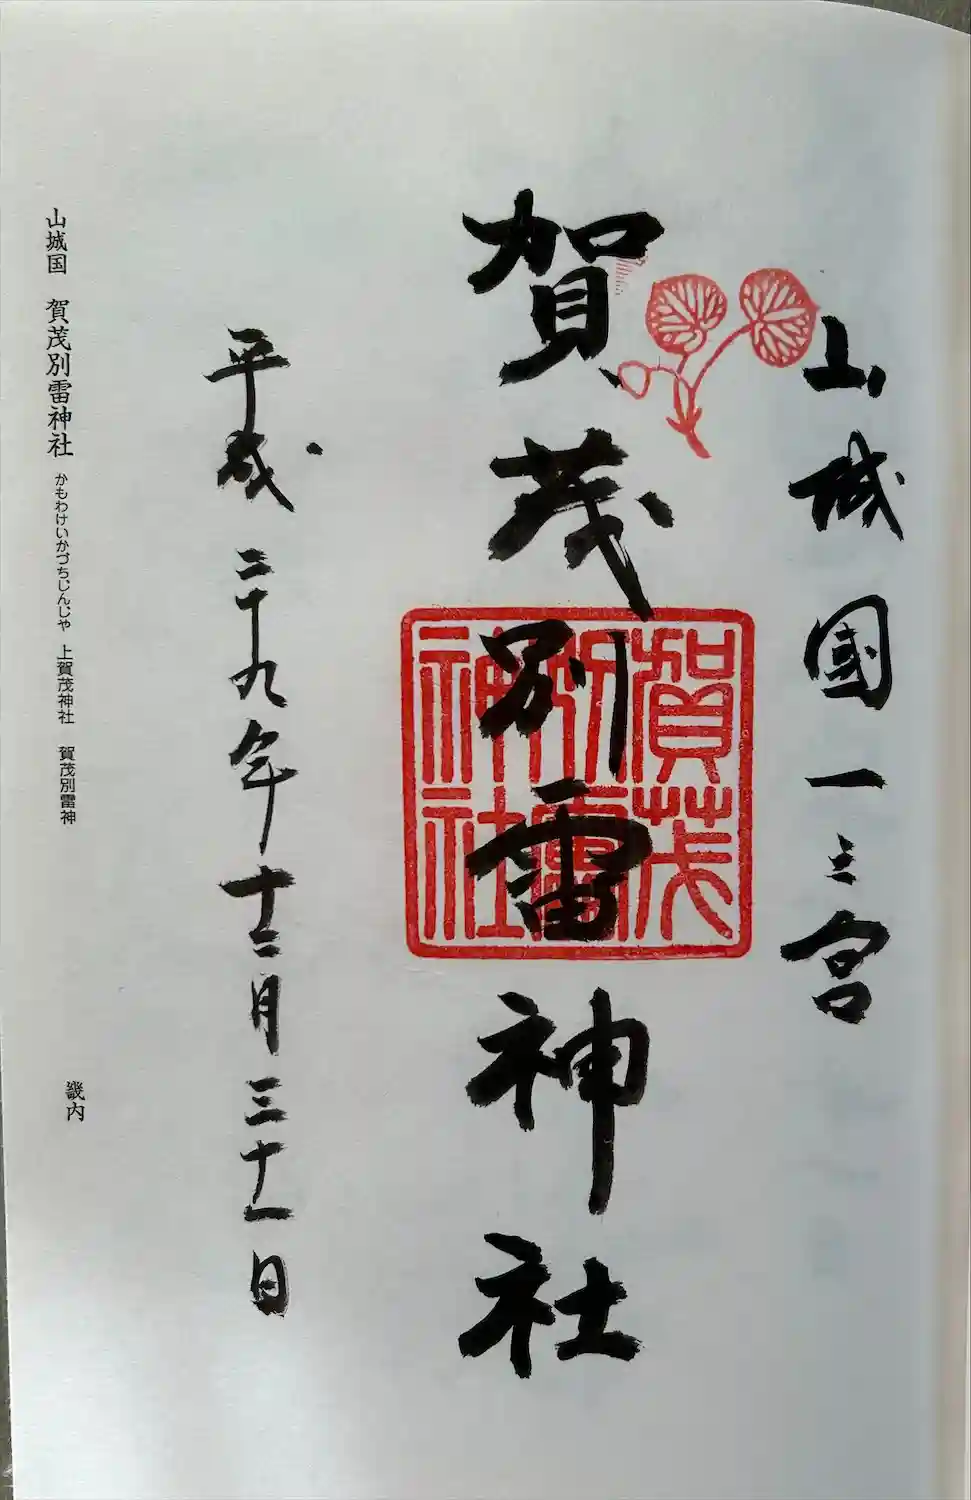 山城國一之宮
賀茂別雷神社
賀茂
別雷
神社
平成二十九年十二月三十一日
山城国 賀茂別雷神社 かもわけいかづちじんじゃ 上賀茂神社 賀茂別雷神 畿内